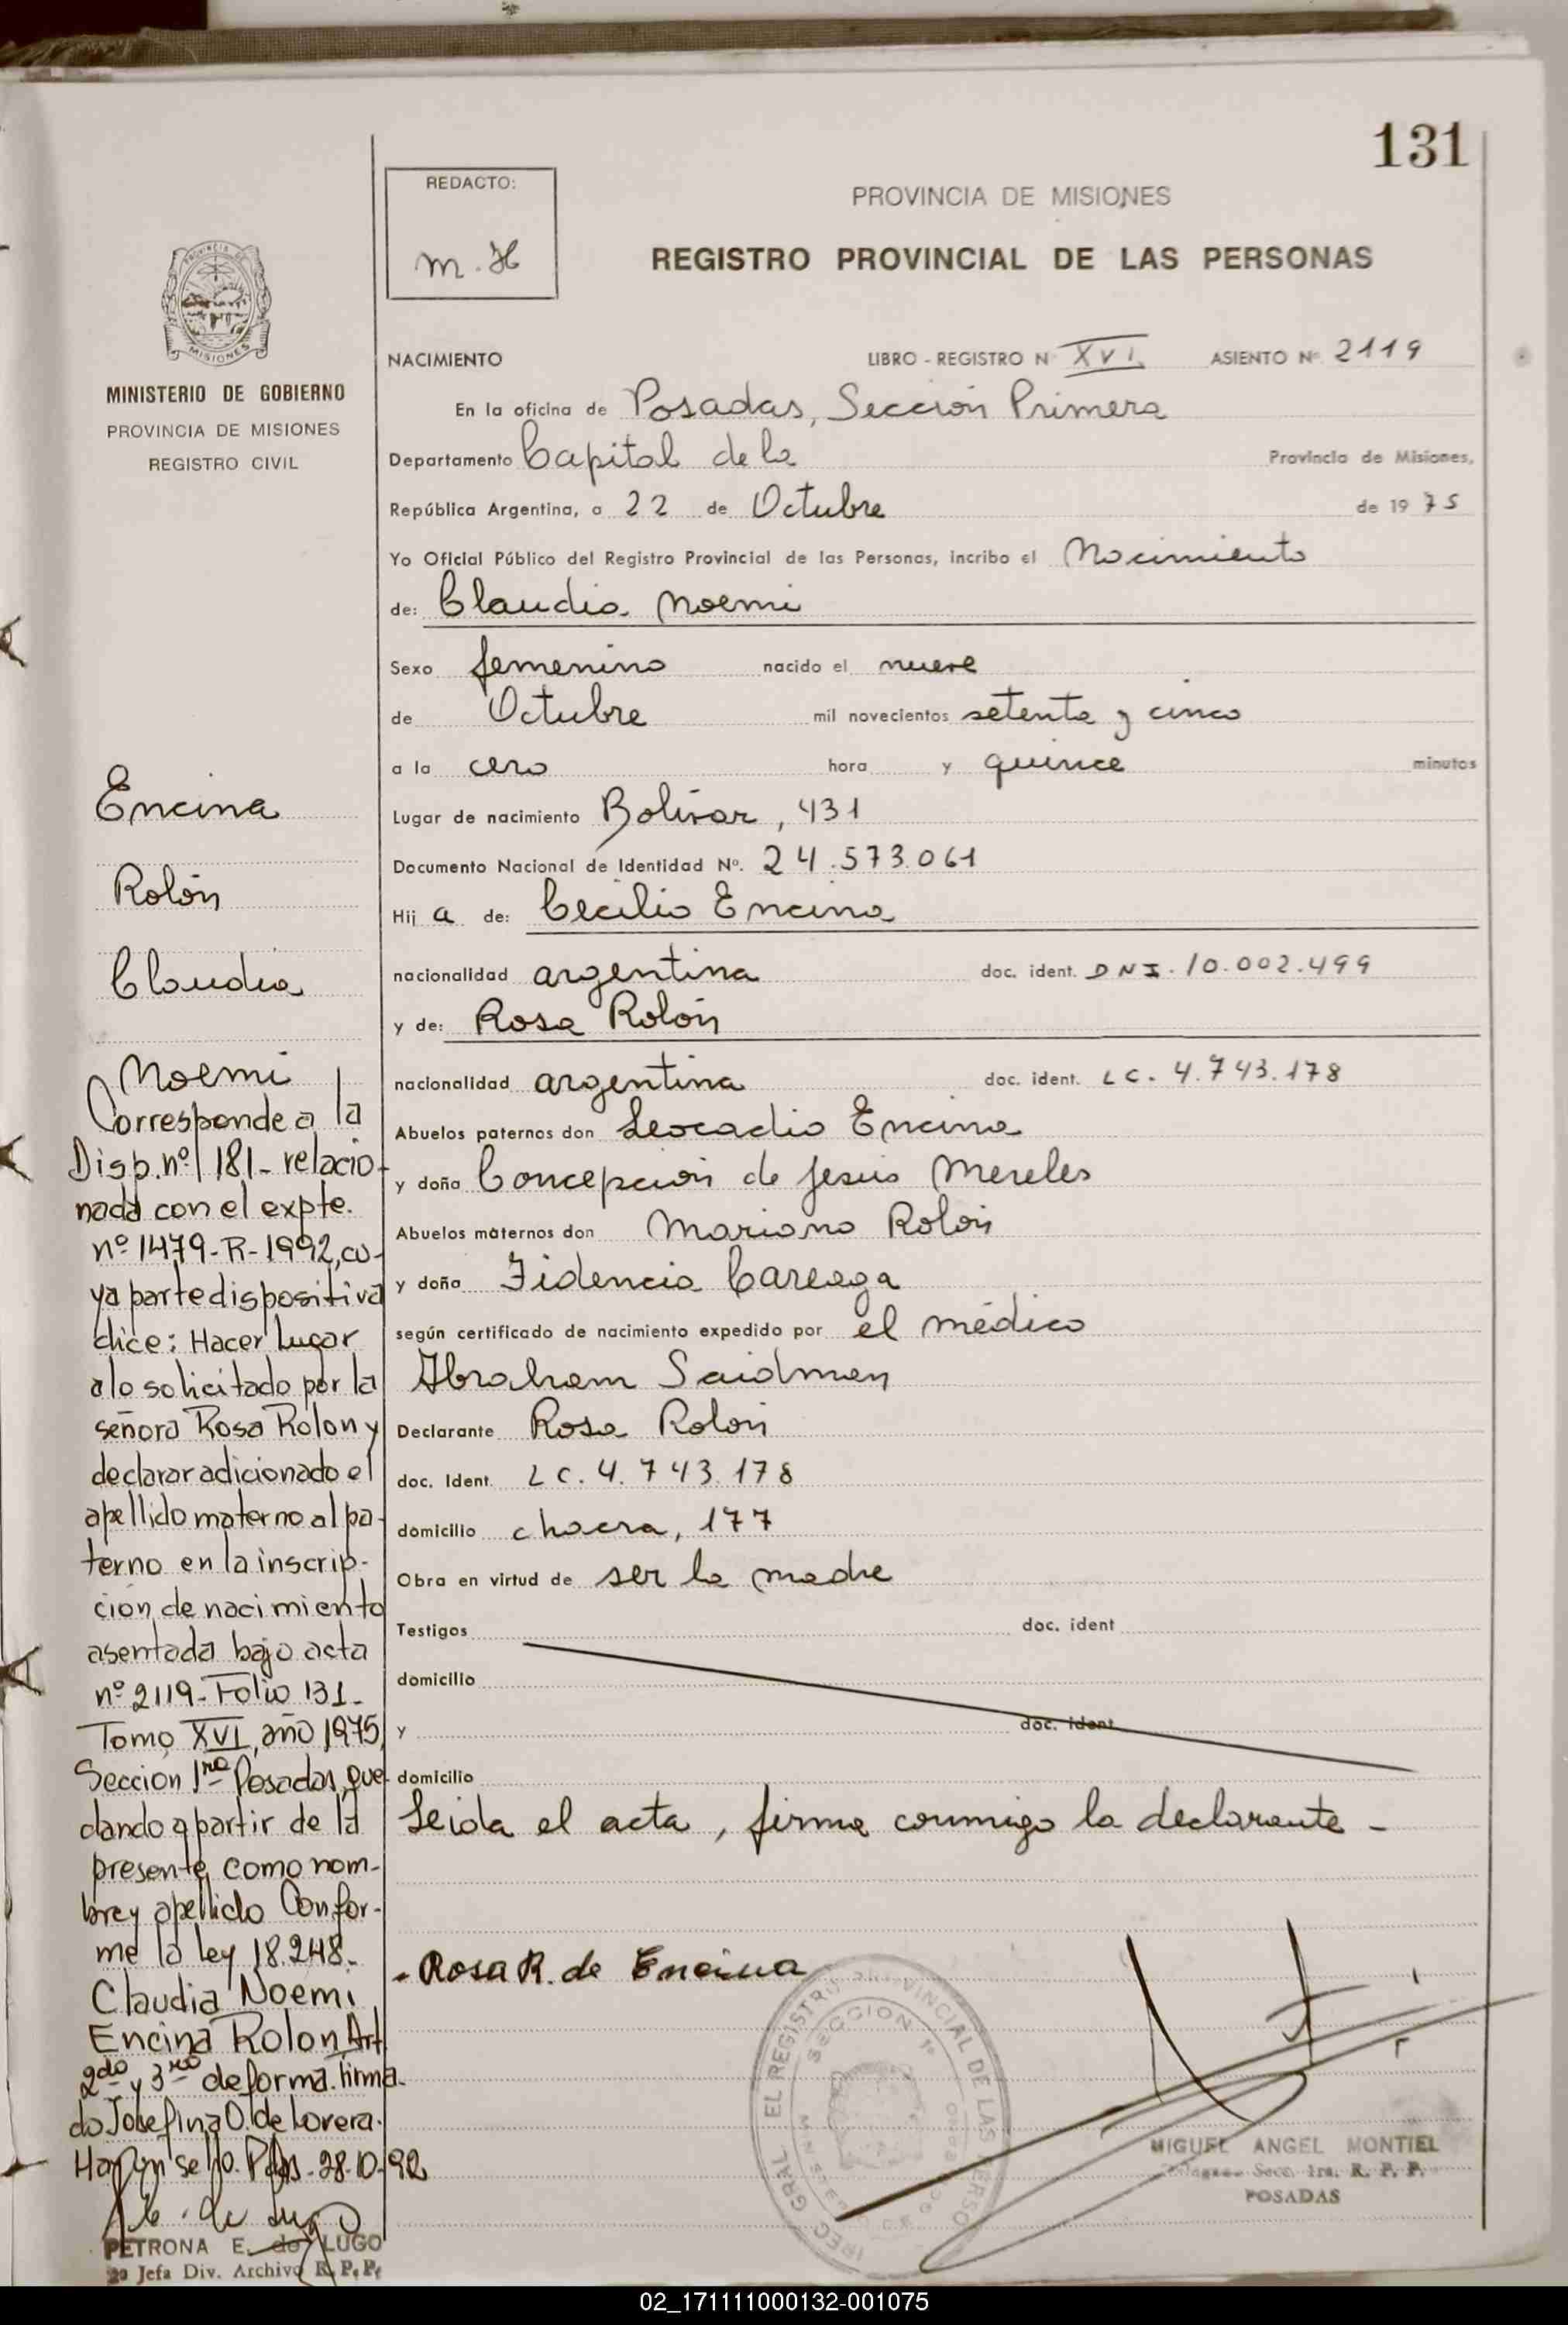 131
REDACTO:
M. H
PROVINCIA DE MISIONES
REGISTRO PROVINCIAL DE LAS PERSONAS
MISIONES
MINISTERIO DE GOBIERNO
PROVINCIA DE MISIONES
REGISTRO CIVIL
NACIMIENTO LIBRO - REGISTRO N XVI ASIENTO Nº 2119
En la oficina de Posadas, Sección Primera
Departamento Capital de la Provincia de Misiones,
República Argentina, a 22 de Octubre de 1975
Yo Oficial Público del Registro Provincial de las Personas, incribo el Nacimiento
de: Claudia Noemi
Sexo femenino nacido el nueve
de Octubre mil novecientos setenta y cinco
a la cero hora y quince minutos
Lugar de nacimiento Bolívar, 431
Documento Nacional de Identidad Nº. 24.573.061
Hij a de: Cecilio Encina
nacionalidad argentina doc. ident. DNI. 10.002.499
y de: Rosa Rolón
nacionalidad argentina doc. ident. LC. 4.743.178
Abuelos paternos don Leocadio Encina
y doña Concepción de Jesús Mereles
Abuelos maternos don Mariano Rolón
y doña Fidencia Careaga
según certificado de nacimiento expedido por el médico
Abraham Saidman
Declarante Rosa Rolón
doc. Ident. LC. 4.743.178
domicilio chacra, 177
Obra en virtud de ser la madre
Testigos doc. ident
domicilio
y doc. ident
domicilio
Leida el acta, firma conmigo la declarante -
Rosa R. de Encina
SECCION 1ª
MIGUEL ANGEL MONTIEL
Secc. 1ra. R. P. P.
POSADAS
Encina
Rolón
Claudia
Noemi
Corresponde a la
Disp. nº 181- relacio-
nada con el expte.
nº 1479-R-1992, cu-
ya parte dispositiva
dice: Hacer Lugar
a lo solicitado por la
señora Rosa Rolon y
declarar adicionado el
apellido materno al pa-
terno en la inscrip-
ción de nacimiento
asentada bajo acta
nº 2119-Folio 131-
Tomo XVI, año 1975,
Sección 1ra Posadas, que-
dando a partir de la
presente como nom-
bre y apellido Confor-
me la ley 18.248-
Claudia Noemi
Encina Rolon Art
2do y 3ro de forma. Firma-
do Josefina O. de Lovera.
Hay un sello. Pdas. 28-10-92
PETRONA E. de LUGO
2ª Jefa Div. Archivo R. P. P.
02_171111000132-001075